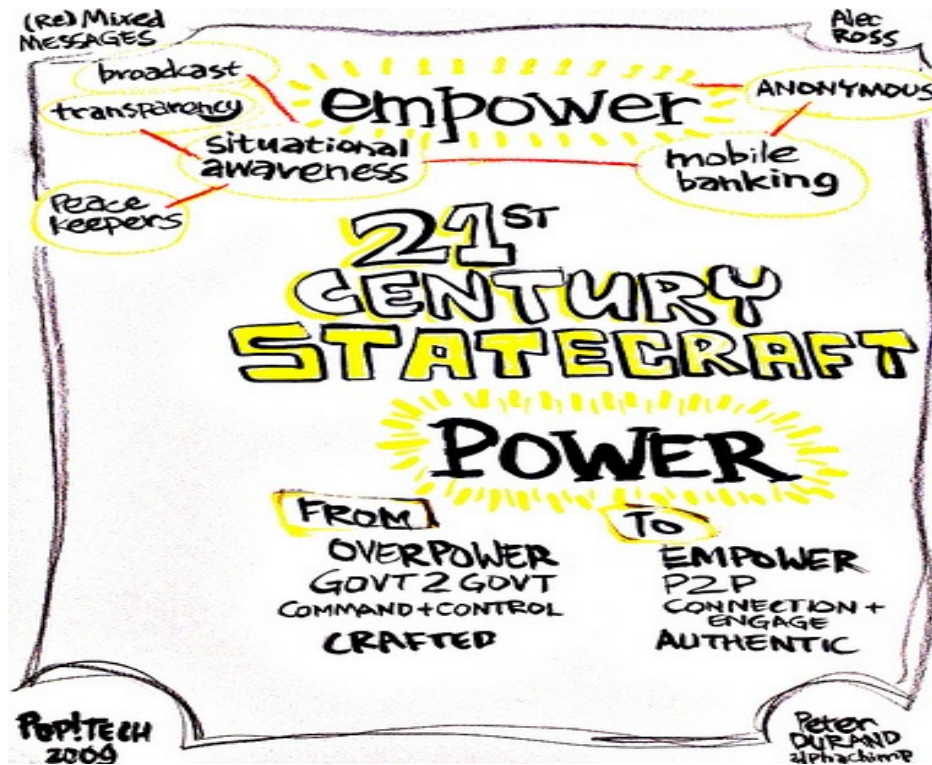 (Re) Mixed
MESSAGES
Alec
ROSS
broadcast
transparency
empower
ANONYMOUS
situational
awareness
mobile
banking
Peace
keepers
21ST
CENTURY
STATECRAFT
POWER
FROM
TO
OVERPOWER
EMPOWER
GOVT 2 GOVT
P2P
COMMAND + CONTROL
CONNECTION +
ENGAGE
CRAFTED
AUTHENTIC
POP!TECH
2009
Peter
DURAND
alphachimp